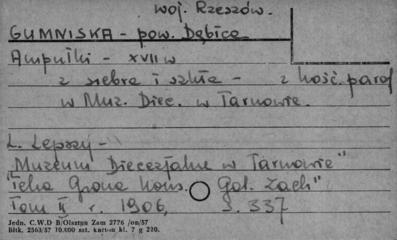 woj. Rzeszów.
GUMNISKA - pow. Dębica
Ampułki - XVII w
z srebra i szkła - z kość. paraf
w Muz. Diec. w Tarnowie.
L. Lepszy -
"Muzeum Diecezjalne w Tarnowie"
"Teka Grona Kons. Gal. Zach"
Tom II r. 1906, S. 337
Jedn. C.W.D B/Olsztyn Zam 2776 /on/57
Bltk. 2563/57 10.000 szt. karton kl. 7 g 220.